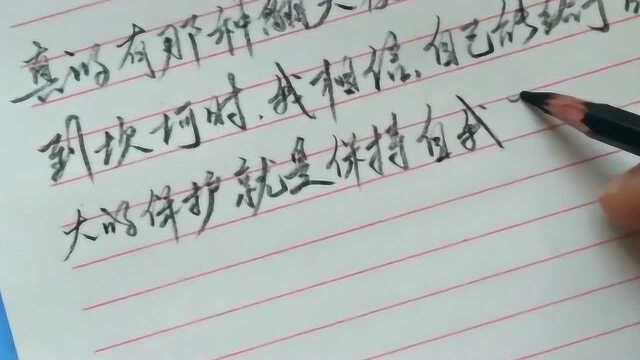 真的有那种
到坎坷时，我相信，自己能
大的保护就是保持自我一